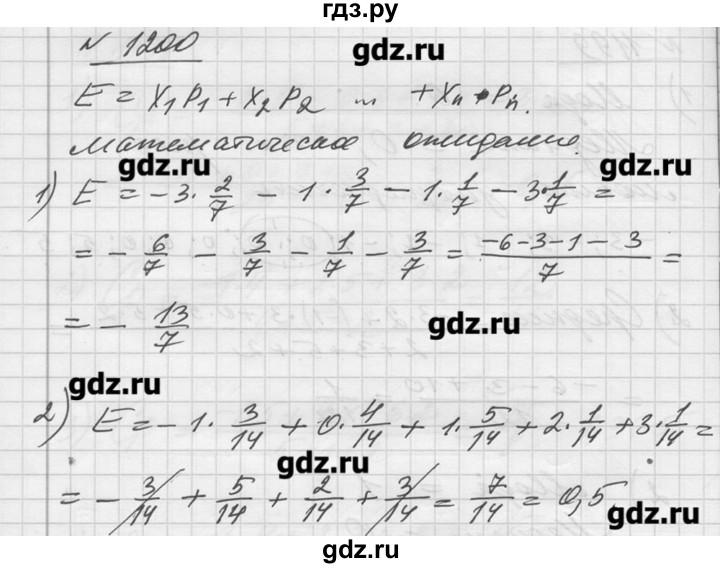 гдз.ру
№ 1200
gdz.ru
E = x₁P₁ + x₂P₂ ... + xₙ · Pₙ.
математическое ожидание.
gdz.ru gdz.ru
1) E = -3 · 2/7 - 1 · 3/7 - 1 · 1/7 - 3 · 1/7 =
= - 6/7 - 3/7 - 1/7 - 3/7 = (-6-3-1-3)/7 =
= - 13/7
gdz.ru
gdz.ru
2) E = -1 · 3/14 + 0 · 4/14 + 1 · 5/14 + 2 · 1/14 + 3 · 1/14 =
gdz.ru
= - 3/14 + 5/14 + 2/14 + 3/14 = 7/14 = 0,5.
gdz.ru
gdz.ru